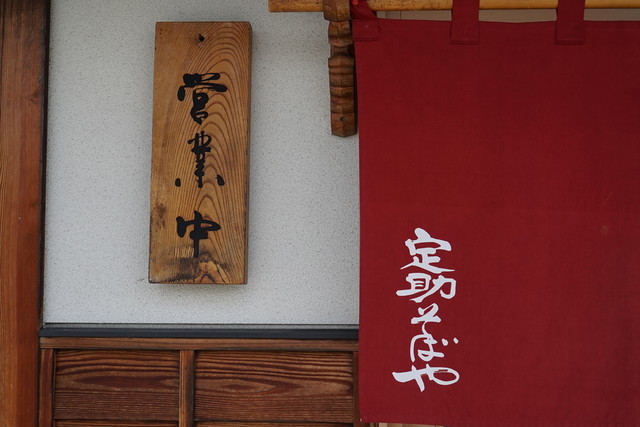 営業中
定助そばや